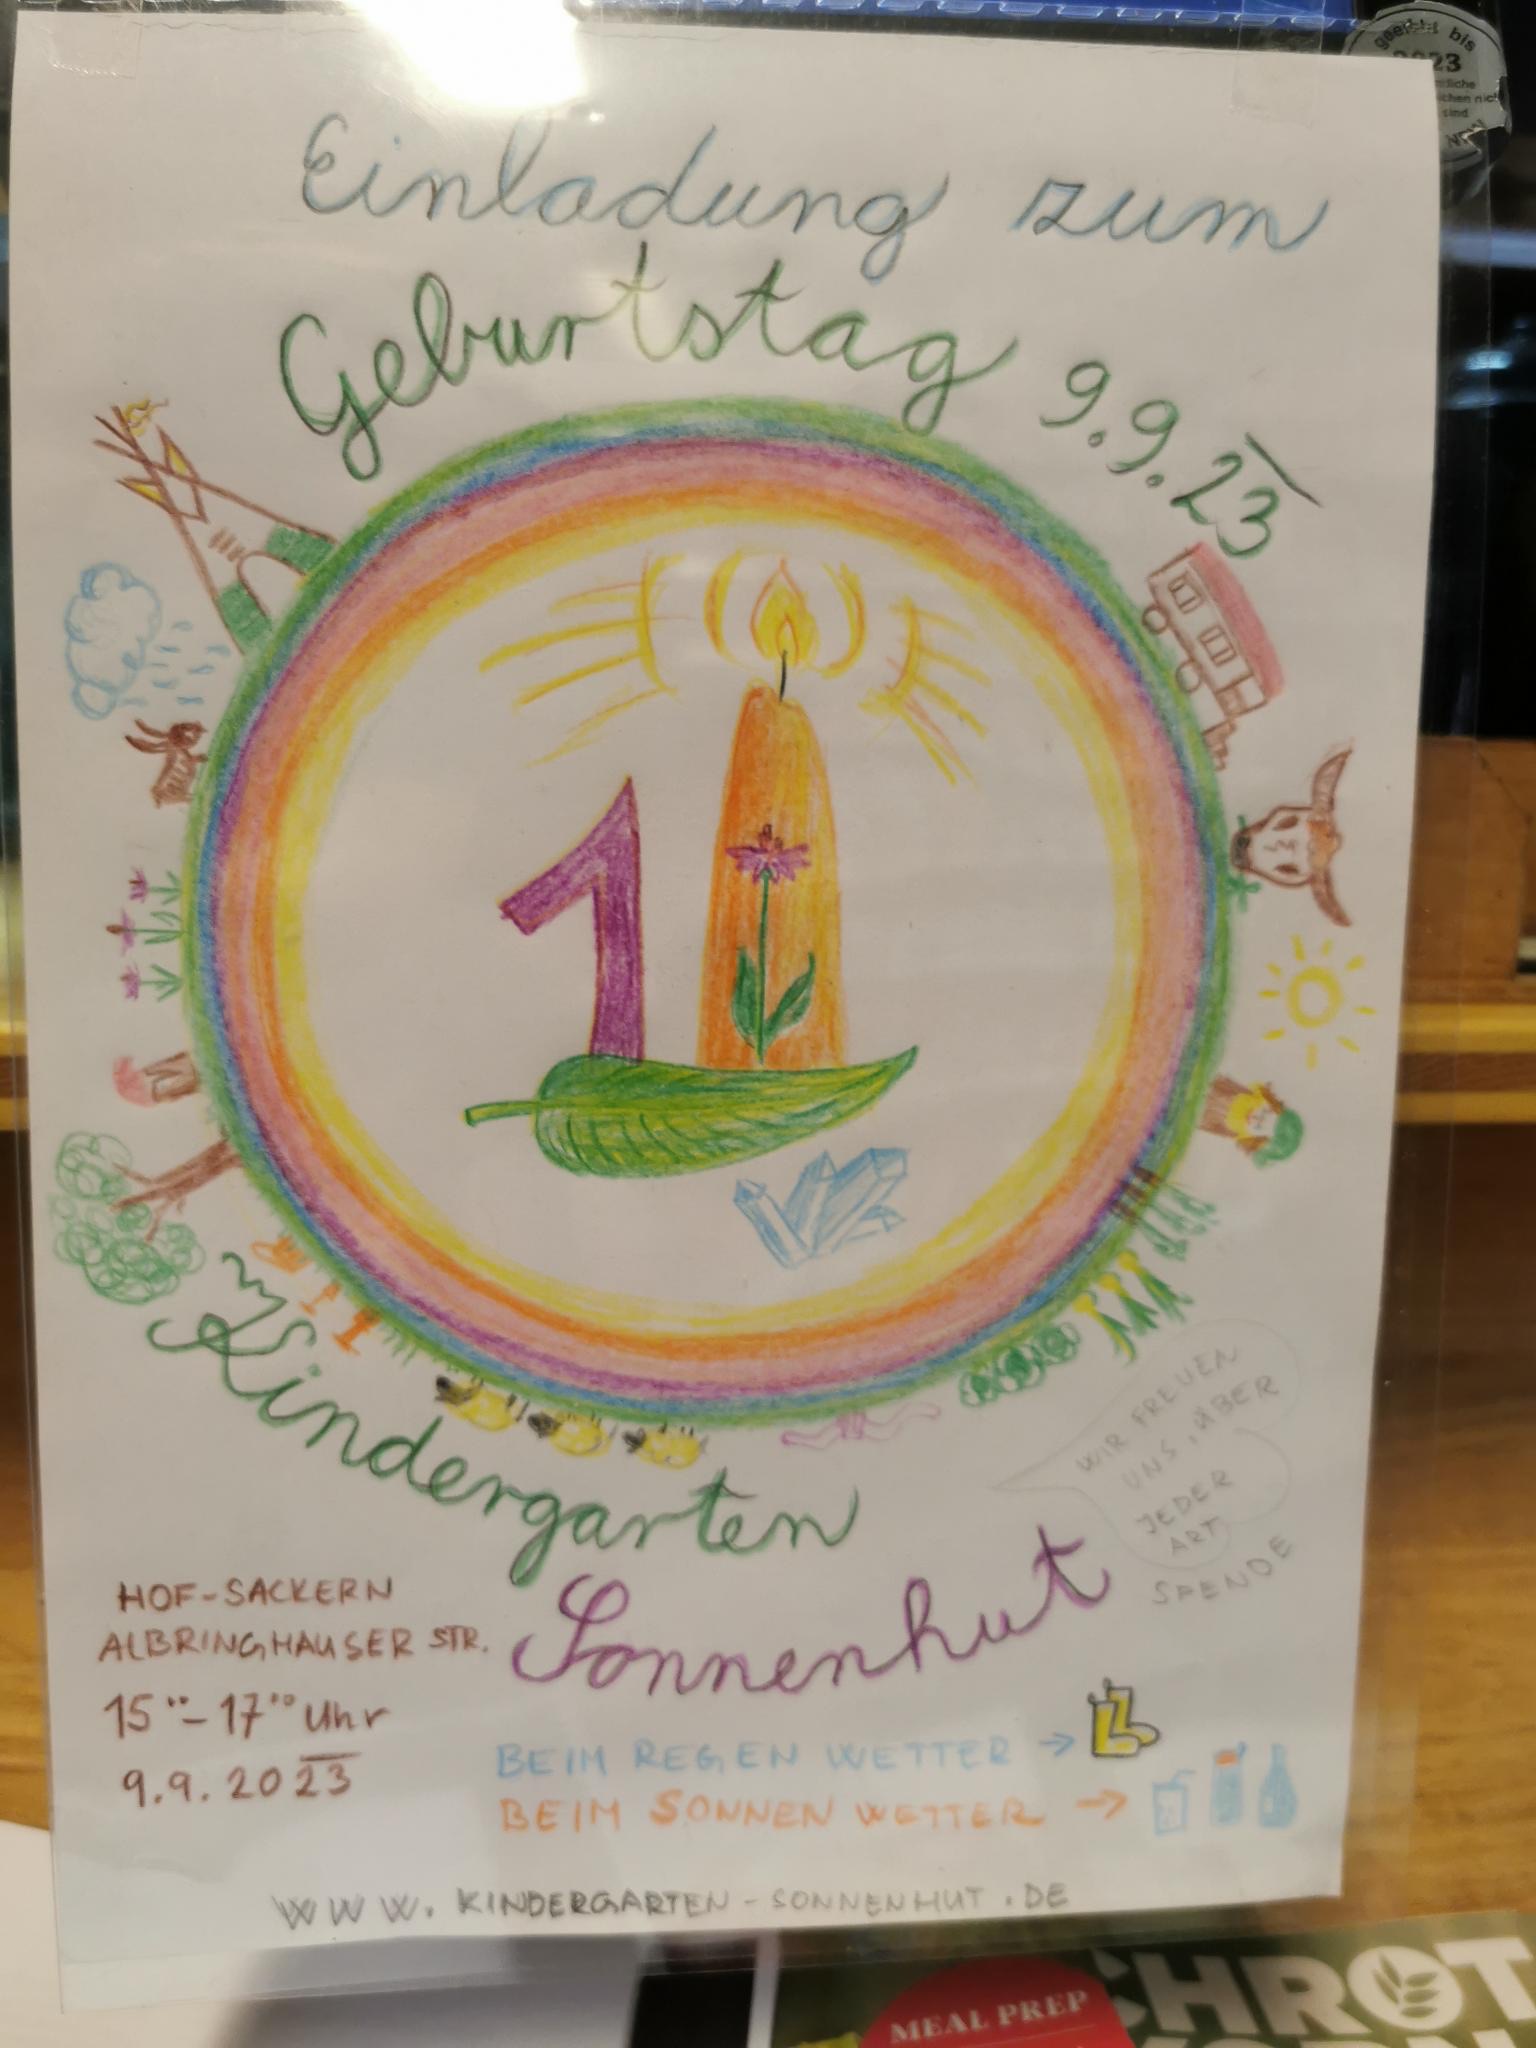 geeicht bis
2023
NRW
Einladung zum
Geburtstag 9.9.23
1
Kindergarten
Sonnenhut
WIR FREUEN
UNS, ÜBER
JEDER
ART
SPENDE
HOF-SACKERN
ALBRINGHAUSER STR.
15°°-17°° Uhr
9.9.2023
BEIM REGEN WETTER →
BEIM SONNEN WETTER →
WWW.KINDERGARTEN-SONNENHUT.DE
MEAL PREP